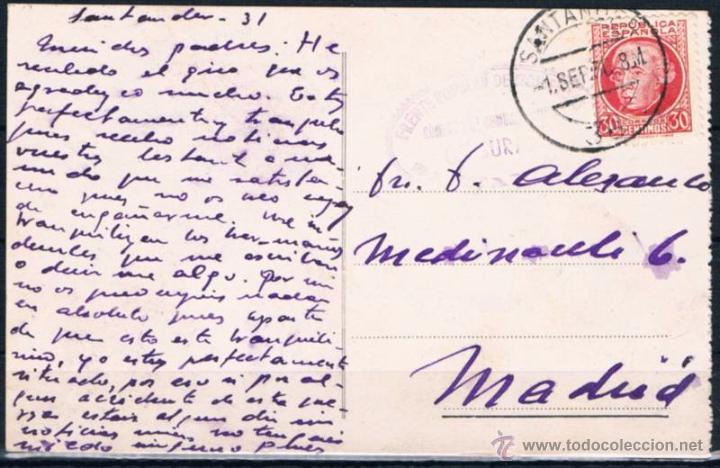 Santander - 31
queridos padres: He
recibido el giro que os
agradezco mucho. Estoy
perfectamente y tranquilo
pues recibo noticias
vuestras bastante a me-
nudo que me
pues no os creo
de engañarme. me
tranquilizan los hermanos
decirles que me escriban
o decirme algo. Por mi
no os preocupeis nada
en absoluto pues aparte
de que esto está tranquili-
simo, yo estoy perfectamente
situado, por eso si por al-
gun accidente de esta gue-
rra estais algun dia sin
noticias mias no tengais
miedo ninguno pues
SANTANDER
1. SEP. 8.M
REPUBLICA
ESPAÑOLA
30 CENTIMOS 30
FRENTE POPULAR DE
CENSURA
Sr. D.
Medinaceli 6.
Madrid
www.todocoleccion.net